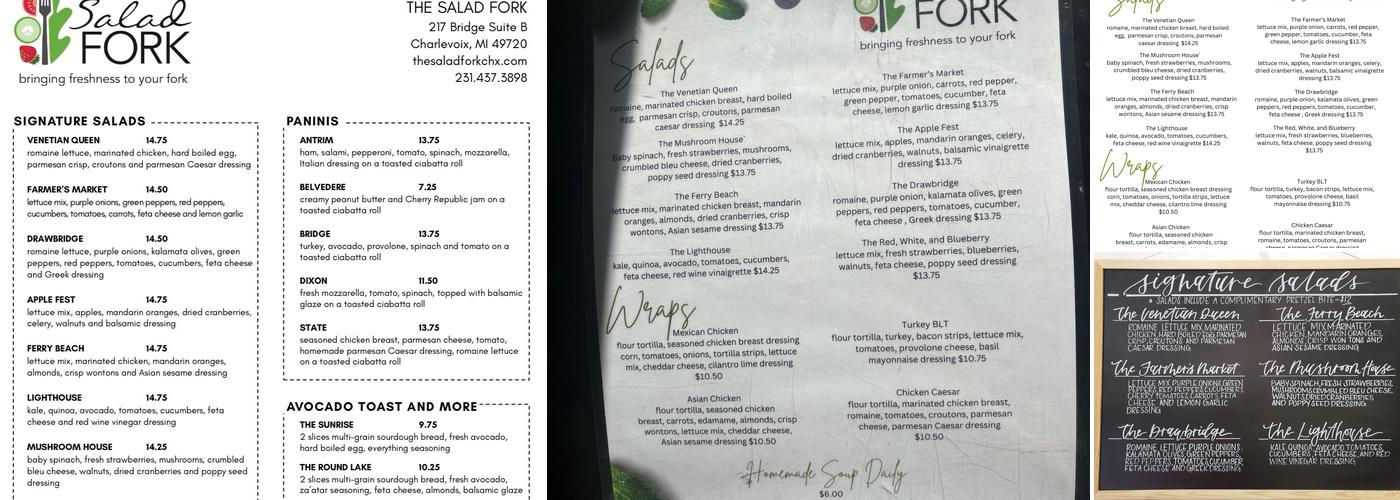 Salad
FORK
bringing freshness to your fork
THE SALAD FORK
217 Bridge Suite B
Charlevoix, MI 49720
thesaladforkchx.com
231.437.3898
SIGNATURE SALADS
VENETIAN QUEEN 14.75
romaine lettuce, marinated chicken, hard boiled egg,
parmesan crisp, croutons and parmesan Caesar dressing
FARMER'S MARKET 14.50
lettuce mix, purple onions, green peppers, red peppers,
cucumbers, tomatoes, carrots, feta cheese and lemon garlic
DRAWBRIDGE 14.50
romaine lettuce, purple onions, kalamata olives, green
peppers, red peppers, tomatoes, cucumbers, feta cheese
and Greek dressing
APPLE FEST 14.75
lettuce mix, apples, mandarin oranges, dried cranberries,
celery, walnuts and balsamic dressing
FERRY BEACH 14.75
lettuce mix, marinated chicken, mandarin oranges,
almonds, crisp wontons and Asian sesame dressing
LIGHTHOUSE 14.75
kale, quinoa, avocado, tomatoes, cucumbers, feta
cheese and red wine vinegar dressing
MUSHROOM HOUSE 14.25
baby spinach, fresh strawberries, mushrooms, crumbled
bleu cheese, walnuts, dried cranberries and poppy seed
dressing
PANINIS
ANTRIM 13.75
ham, salami, pepperoni, tomato, spinach, mozzarella,
Italian dressing on a toasted ciabatta roll
BELVEDERE 7.25
creamy peanut butter and Cherry Republic jam on a
toasted ciabatta roll
BRIDGE 13.75
turkey, avocado, provolone, spinach and tomato on a
toasted ciabatta roll
DIXON 11.50
fresh mozzarella, tomato, spinach, topped with balsamic
glaze on a toasted ciabatta roll
STATE 13.75
seasoned chicken breast, parmesan cheese, tomato,
homemade parmesan Caesar dressing, romaine lettuce
on a toasted ciabatta roll
AVOCADO TOAST AND MORE
THE SUNRISE 9.75
2 slices multi-grain sourdough bread, fresh avocado,
hard boiled egg, everything seasoning
THE ROUND LAKE 10.25
2 slices multi-grain sourdough bread, fresh avocado,
za'atar seasoning, feta cheese, almonds, balsamic glaze
FORK
bringing freshness to your fork
Salads
The Venetian Queen
romaine, marinated chicken breast, hard boiled
egg, parmesan crisp, croutons, parmesan
caesar dressing $14.25
The Mushroom House
baby spinach, fresh strawberries, mushrooms,
crumbled bleu cheese, dried cranberries,
poppy seed dressing $13.75
The Ferry Beach
lettuce mix, marinated chicken breast, mandarin
oranges, almonds, dried cranberries, crisp
wontons, Asian sesame dressing $13.75
The Lighthouse
kale, quinoa, avocado, tomatoes, cucumbers,
feta cheese, red wine vinaigrette $14.25
The Farmer's Market
lettuce mix, purple onion, carrots, red pepper,
green pepper, tomatoes, cucumber, feta
cheese, lemon garlic dressing $13.75
The Apple Fest
lettuce mix, apples, mandarin oranges, celery,
dried cranberries, walnuts, balsamic vinaigrette
dressing $13.75
The Drawbridge
romaine, purple onion, kalamata olives, green
peppers, red peppers, tomatoes, cucumber,
feta cheese , Greek dressing $13.75
The Red, White, and Blueberry
lettuce mix, fresh strawberries, blueberries,
walnuts, feta cheese, poppy seed dressing
$13.75
Wraps
Mexican Chicken
flour tortilla, seasoned chicken breast dressing
corn, tomatoes, onions, tortilla strips, lettuce
mix, cheddar cheese, cilantro lime dressing
$10.50
Asian Chicken
flour tortilla, seasoned chicken
breast, carrots, edamame, almonds, crisp
wontons, lettuce mix, cheddar cheese,
Asian sesame dressing $10.50
Turkey BLT
flour tortilla, turkey, bacon strips, lettuce mix,
tomatoes, provolone cheese, basil
mayonnaise dressing $10.75
Chicken Caesar
flour tortilla, marinated chicken breast,
romaine, tomatoes, croutons, parmesan
cheese, parmesan Caesar dressing
$10.50
Homemade Soup Daily
$6.00
Salads
The Venetian Queen
romaine, marinated chicken breast, hard boiled
egg, parmesan crisp, croutons, parmesan
caesar dressing $14.25
The Mushroom House
baby spinach, fresh strawberries, mushrooms,
crumbled bleu cheese, dried cranberries,
poppy seed dressing $13.75
The Ferry Beach
lettuce mix, marinated chicken breast, mandarin
oranges, almonds, dried cranberries, crisp
wontons, Asian sesame dressing $13.75
The Lighthouse
kale, quinoa, avocado, tomatoes, cucumbers,
feta cheese, red wine vinaigrette $14.25
The Farmer's Market
lettuce mix, purple onion, carrots, red pepper,
green pepper, tomatoes, cucumber, feta
cheese, lemon garlic dressing $13.75
The Apple Fest
lettuce mix, apples, mandarin oranges, celery,
dried cranberries, walnuts, balsamic vinaigrette
dressing $13.75
The Drawbridge
romaine, purple onion, kalamata olives, green
peppers, red peppers, tomatoes, cucumber,
feta cheese , Greek dressing $13.75
The Red, White, and Blueberry
lettuce mix, fresh strawberries, blueberries,
walnuts, feta cheese, poppy seed dressing
$13.75
Wraps
Mexican Chicken
flour tortilla, seasoned chicken breast dressing
corn, tomatoes, onions, tortilla strips, lettuce
mix, cheddar cheese, cilantro lime dressing
$10.50
Asian Chicken
flour tortilla, seasoned chicken
breast, carrots, edamame, almonds, crisp
Turkey BLT
flour tortilla, turkey, bacon strips, lettuce mix,
tomatoes, provolone cheese, basil
mayonnaise dressing $10.75
Chicken Caesar
flour tortilla, marinated chicken breast,
romaine, tomatoes, croutons, parmesan
signature salads
• SALADS INCLUDE A COMPLIMENTARY PRETZEL BITE-$12
The Venetian Queen
ROMAINE LETTUCE MIX, MARINATED
CHICKEN, HARD BOILED EGG, PARMESAN
CRISP, CROUTONS, AND PARMESAN
CAESAR DRESSING
The Farmer's Market
LETTUCE MIX, PURPLE ONIONS, GREEN
PEPPERS, RED PEPPERS, CUCUMBERS,
CHERRY TOMATOES, CARROTS, FETA
CHEESE AND LEMON GARLIC
DRESSING
The Drawbridge
ROMAINE LETTUCE, PURPLE ONIONS,
KALAMATA OLIVES, GREEN PEPPERS,
RED PEPPERS, TOMATOES, CUCUMBER,
FETA CHEESE AND GREEK DRESSING
The Ferry Beach
LETTUCE MIX, MARINATED
CHICKEN, MANDARIN ORANGES,
ALMONDS, CRISP WON TONS AND
ASIAN SESAME DRESSING
The Mushroom House
BABY SPINACH, FRESH STRAWBERRIES,
MUSHROOMS, CRUMBLED BLEU CHEESE,
WALNUTS, DRIED CRANBERRIES
AND POPPY SEED DRESSING
The Lighthouse
KALE, QUINOA, AVOCADO, TOMATOES,
CUCUMBERS, FETA CHEESE, AND RED
WINE VINEGAR DRESSING